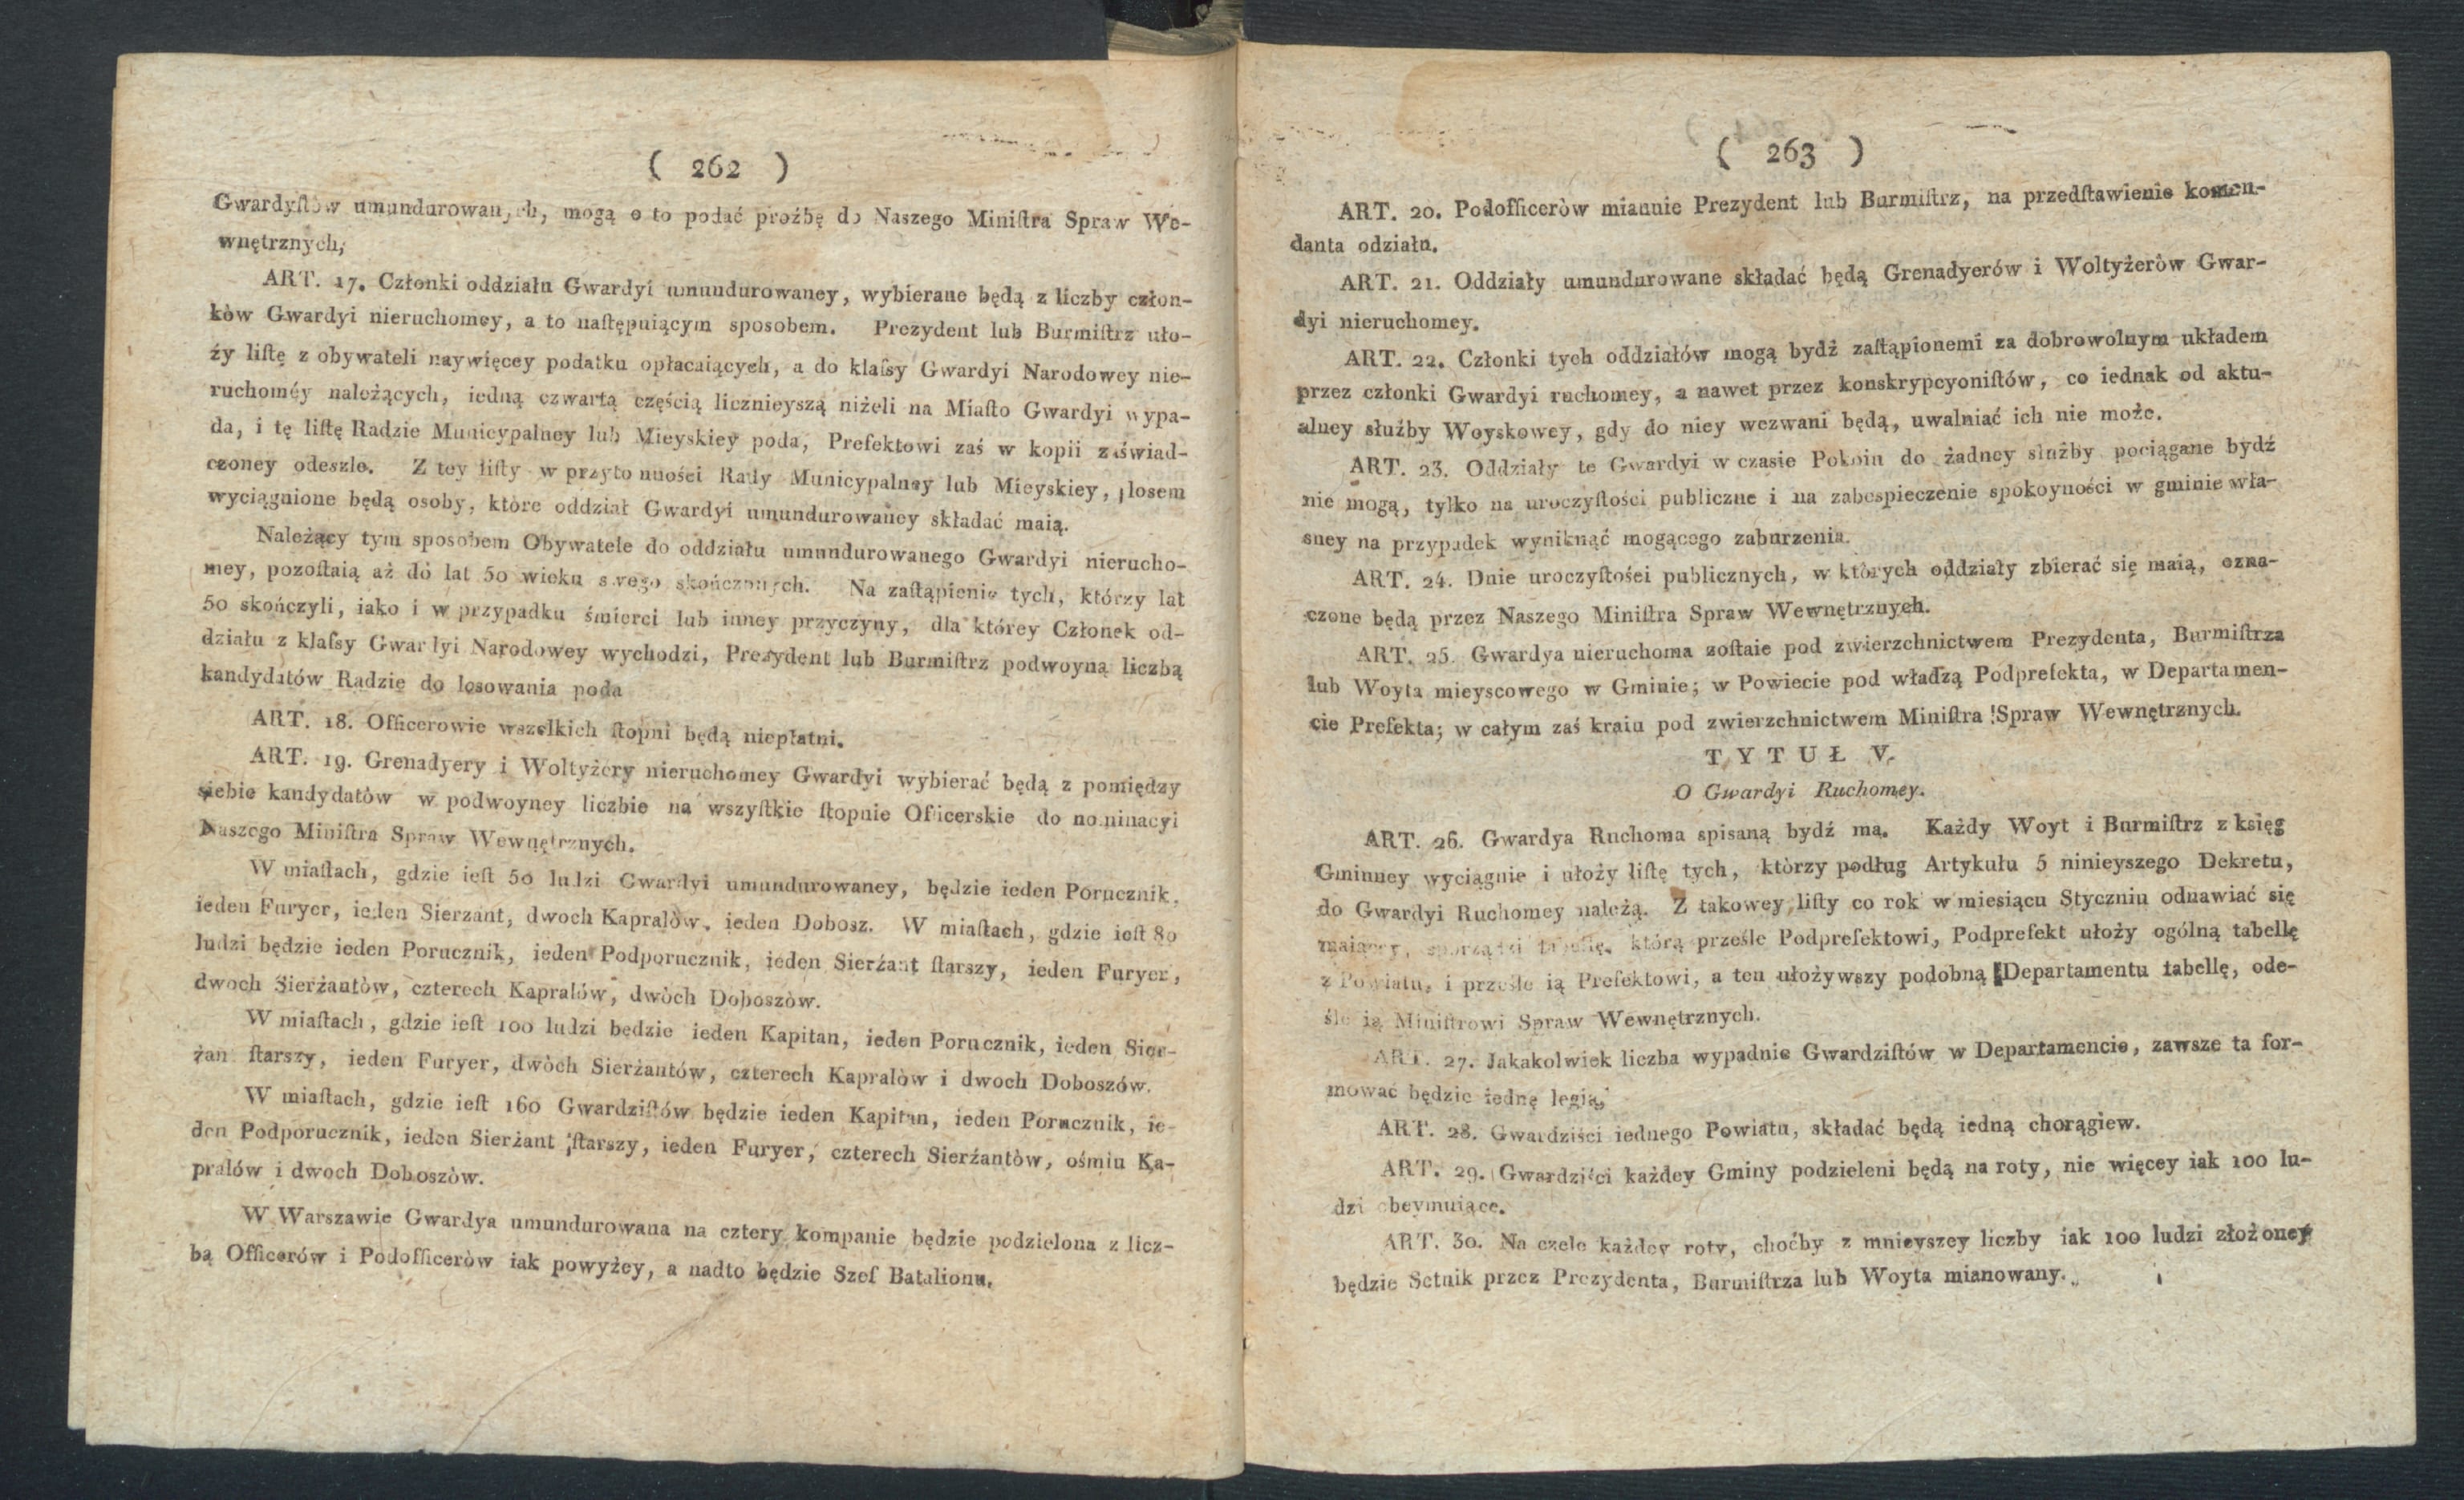 ( 262 )
Gwardyſtów umundurowanych, mogą o to podać proźbę do Naszego Miniſtra Spraw We-
wnętrznych,
ART. 17. Członki oddziału Gwardyi umundurowaney, wybierane będą z liczby człon-
ków Gwardyi nieruchomey, a to naſtępuiącym sposobem. Prezydent lub Burmiſtrz uło-
ży liſtę z obywateli naywięcey podatku opłacaiących, a do klaſsy Gwardyi Narodowey nie-
ruchoméy należących, iedną czwartą częścią licznieyszą niżeli na Miaſto Gwardyi wypa-
da, i tę liſtę Radzie Municypalney lub Mieyskiey poda, Prefektowi zaś w kopii zaświad-
czoney odeszle. Z tey liſty w przytomności Rady Municypalney lub Mieyskiey, losem
wyciągnione będą osoby, które oddział Gwardyi umundurowaney składać maią.
Należący tym sposobem Obywatele do oddziału umundurowanego Gwardyi nierucho-
mey, pozoſtaią aż do lat 50 wieku swego skończonych. Na zaſtąpienie tych, którzy lat
50 skończyli, iako i w przypadku śmierci lub inney przyczyny, dla którey Członek od-
działu z klaſsy Gwardyi Narodowey wychodzi, Prezydent lub Burmiſtrz podwoyną liczbą
kandydatów Radzie do losowania poda
ART. 18. Officerowie wszelkich ſtopni będą niepłatni.
ART. 19. Grenadyery i Woltyżery nieruchomey Gwardyi wybierać będą z pomiędzy
siebie kandydatów w podwoyney liczbie na wszyſtkie ſtopnie Officerskie do nominacyi
Naszego Miniſtra Spraw Wewnętrznych.
W miaſtach, gdzie ieſt 50 ludzi Gwardyi umundurowaney, będzie ieden Porucznik,
ieden Furyer, ieden Sierzant, dwoch Kapralów, ieden Dobosz. W miaſtach, gdzie ieſt 80
ludzi będzie ieden Porucznik, ieden Podporucznik, ieden Sierżant ſtarszy, ieden Furyer,
dwoch Sierżantów, czterech Kapralów, dwóch Doboszów.
W miaſtach, gdzie ieſt 100 ludzi będzie ieden Kapitan, ieden Porucznik, ieden Sier-
żant ſtarszy, ieden Furyer, dwóch Sierżantów, czterech Kapralów i dwoch Doboszów.
W miaſtach, gdzie ieſt 160 Gwardziſtów będzie ieden Kapitan, ieden Porucznik, ie-
den Podporucznik, ieden Sierżant ſtarszy, ieden Furyer, czterech Sierżantów, ośmiu Ka-
pralów i dwoch Doboszów.
W Warszawie Gwardya umundurowana na cztery kompanie będzie podzielona z licz-
bą Officerów i Podofficerów iak powyżey, a nadto będzie Szef Batalionu.
( 263 )
ART. 20. Podofficerów mianuie Prezydent lub Burmiſtrz, na przedſtawienie komen-
danta odziału.
ART. 21. Oddziały umundurowane składać będą Grenadyerów i Woltyżerów Gwar-
dyi nieruchomey.
ART. 22. Członki tych oddziałów mogą bydź zaſtąpionemi za dobrowolnym układem
przez członki Gwardyi ruchomey, a nawet przez konskrypcyoniſtów, co iednak od aktu-
alney służby Woyskowey, gdy do niey wezwani będą, uwalniać ich nie może.
ART. 23. Oddziały te Gwardyi w czasie Pokoiu do żadney służby pociągane bydź
nie mogą, tylko na uroczyſtości publiczne i na zabespieczenie spokoyności w gminie wła-
sney na przypadek wyniknąć mogącego zaburzenia.
ART. 24. Dnie uroczyſtości publicznych, w których oddziały zbierać się maią, ozna-
czone będą przez Naszego Miniſtra Spraw Wewnętrznych.
ART. 25. Gwardya nieruchoma zoſtaie pod zwierzchnictwem Prezydenta, Burmiſtrza
lub Woyta mieyscowego w Gminie; w Powiecie pod władzą Podprefekta, w Departamen-
cie Prefekta; w całym zaś kraiu pod zwierzchnictwem Miniſtra Spraw Wewnętrznych.
TYTUŁ V.
O Gwardyi Ruchomey.
ART. 26. Gwardya Ruchoma spisaną bydź ma. Każdy Woyt i Burmiſtrz z ksiąg
Gminney wyciągnie i ułoży liſtę tych, którzy podług Artykułu 5 ninieyszego Dekretu,
do Gwardyi Ruchomey należą. Z takowey liſty co rok w miesiącu Styczniu odnawiać się
maiącey, sporządzi tabellę, którą prześle Podprefektowi, Podprefekt ułoży ogólną tabellę
z Powiatu, i prześle ią Prefektowi, a ten ułożywszy podobną Departamentu tabellę, ode-
śle ią Miniſtrowi Spraw Wewnętrznych.
ART. 27. Jakakolwiek liczba wypadnie Gwardziſtów w Departamencie, zawsze ta for-
mować będzie iednę legią.
ART. 28. Gwardziści iednego Powiatu, składać będą iedną chorągiew.
ART. 29. Gwardziści każdey Gminy podzieleni będą na roty, nie więcey iak 100 lu-
dzi obeymuiące.
ART. 30. Na czele każdey roty, choćby z mnieyszey liczby iak 100 ludzi złożoney
będzie Setnik przez Prezydenta, Burmiſtrza lub Woyta mianowany.